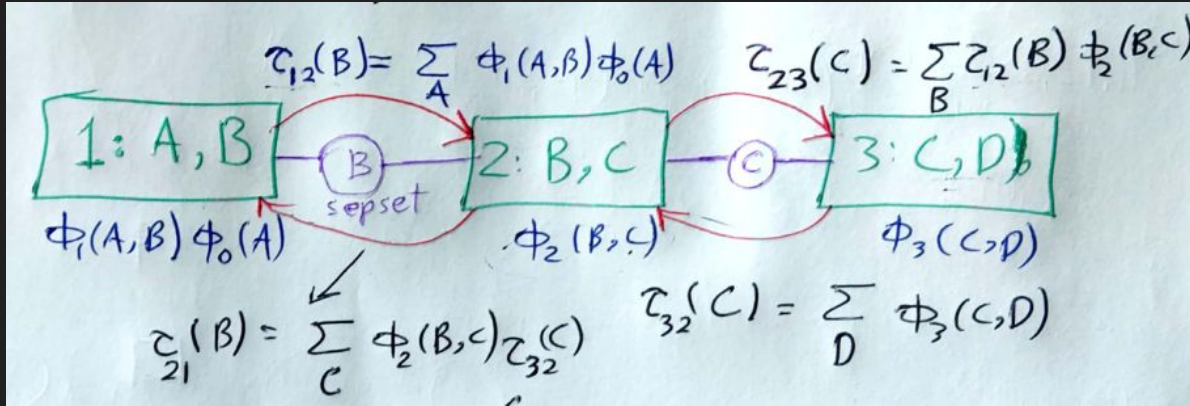 τ₁₂(B) = Σ_A ϕ₁(A,B) ϕ₀(A)
τ₂₃(C) = Σ_B τ₁₂(B) ϕ₂(B,C)
1: A, B
B
2: B, C
C
3: C, D
sepset
ϕ₁(A,B) ϕ₀(A)
ϕ₂(B,C)
ϕ₃(C,D)
τ₂₁(B) = Σ_C ϕ₂(B,C) τ₃₂(C)
τ₃₂(C) = Σ_D ϕ₃(C,D)